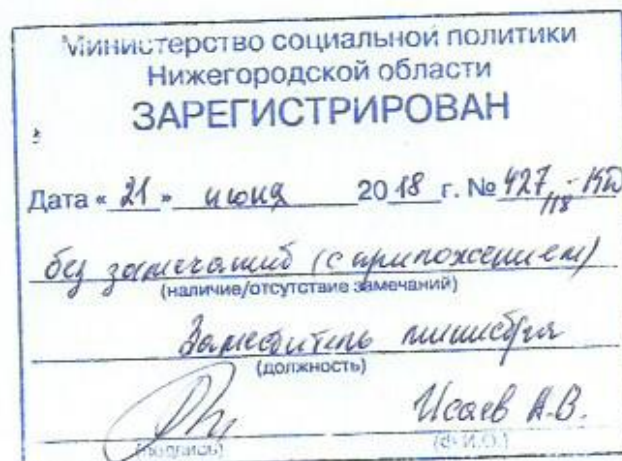 Министерство социальной политики
Нижегородской области
ЗАРЕГИСТРИРОВАН
Дата « 21 » июня 2018 г. № 427/18-КД
без замечаний (с приложением)
(наличие/отсутствие замечаний)
Заместитель министра
(должность)
Исаев А.В.
(подпись) (Ф.И.О.)